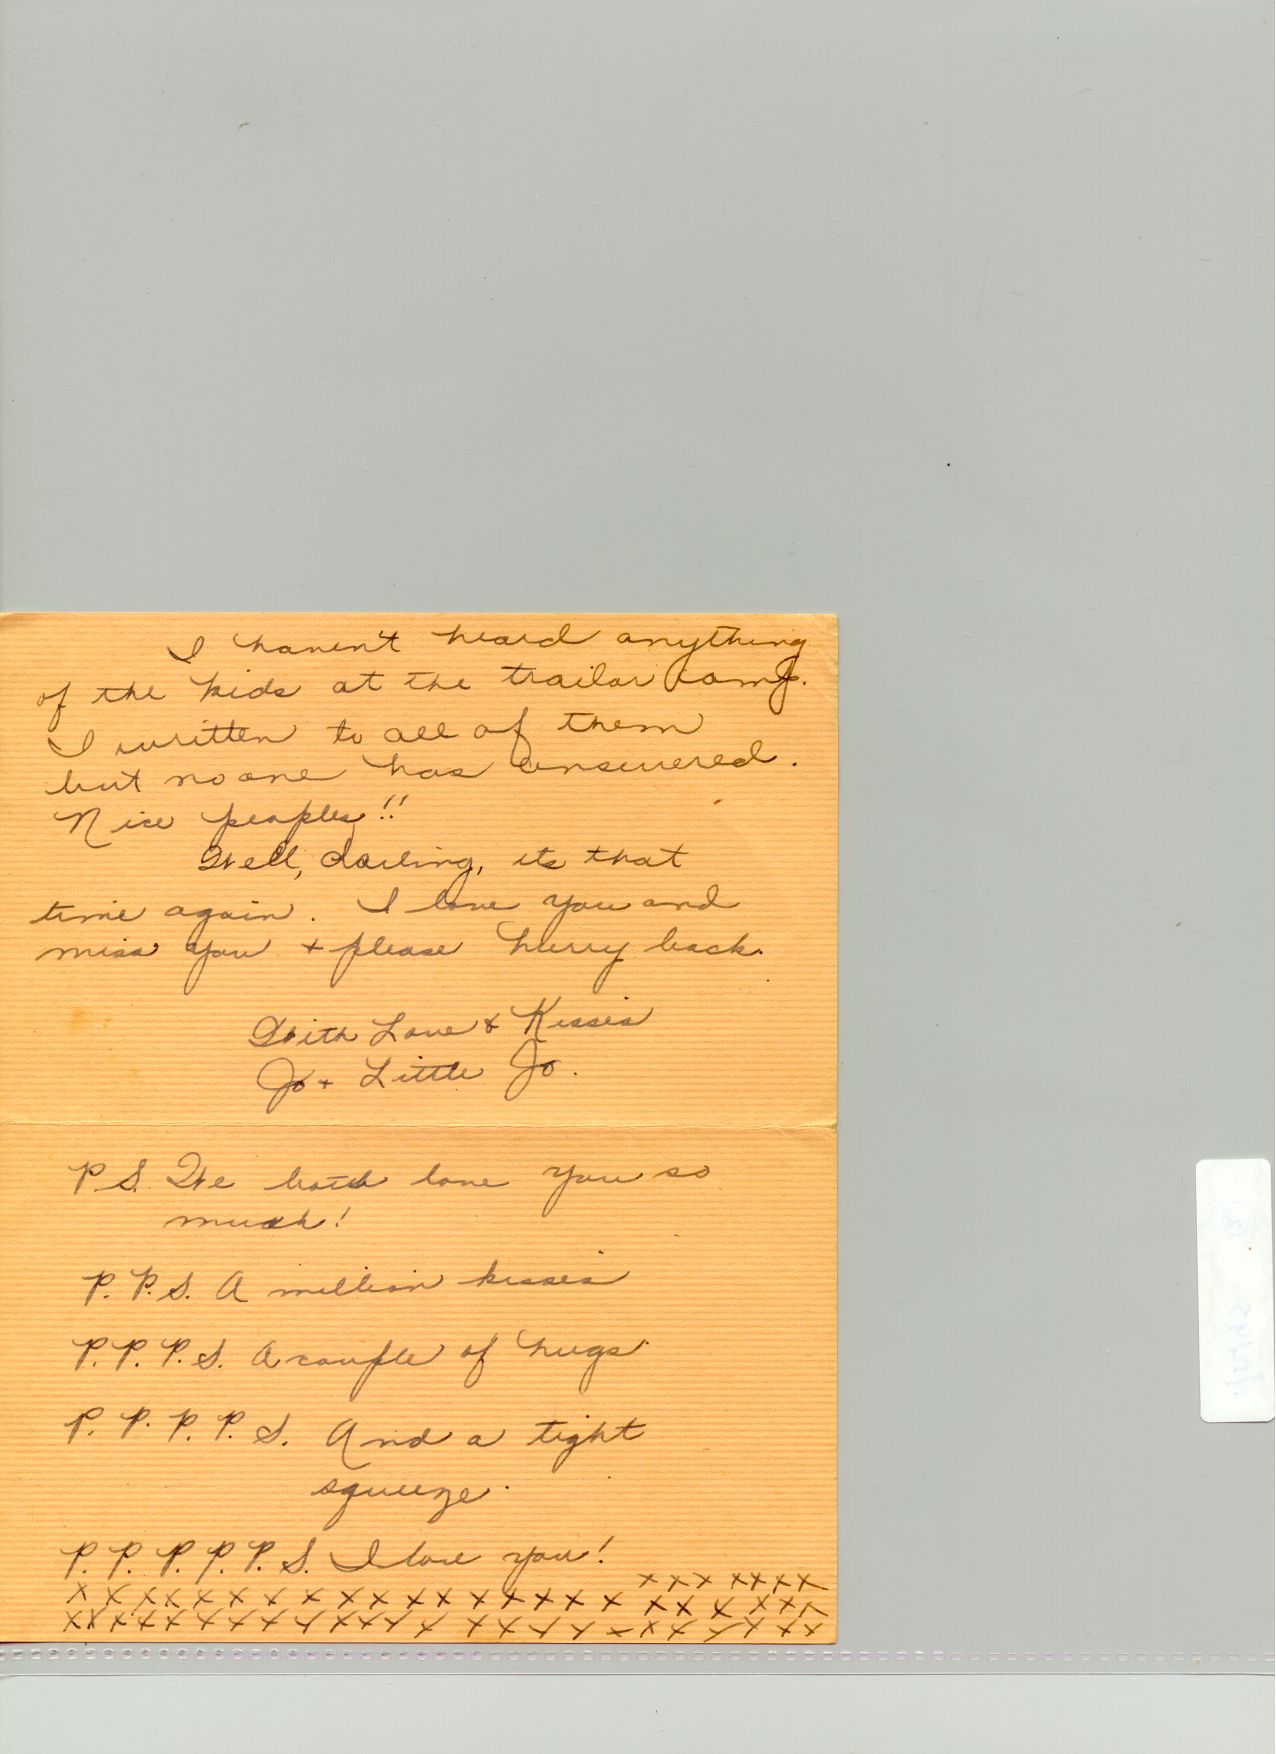 I haven't heard anything
of the kids at the trailor camp.
I written to all of them
but no one has answered.
Nice peoples!!
Well, darling, its that
time again. I love you and
miss you + please hurry back.
With Love & Kisses
Jo + Little Jo.
P.S. We both love you so
much!
P.P.S. A million kisses
P.P.P.S. A couple of hugs
P.P.P.P.S. And a tight
squeeze.
P.P.P.P.P.S. I love you!
x x x x x x x
x x x x x x x x x x x x x x x x x x x x x x x
x x x x x x x x x x x x x x x x x x x x x x x x x